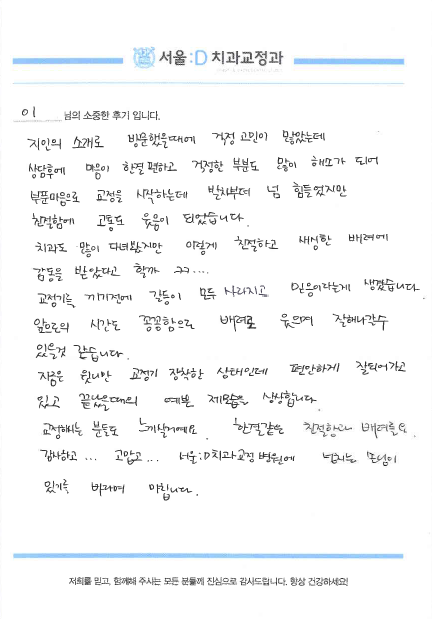 서울:D 치과교정과
이 님의 소중한 후기 입니다.
지인의 소개로 방문했을때에 걱정 고민이 많았는데
상담후에 마음이 한결 편하고 걱정한 부분도 많이 해소가 되어
부푼마음으로 교정을 시작하는데 발치부터 넘 힘들었지만
친절함에 고통도 웃음이 되었습니다.
치과도 많이 다녀봤지만 이렇게 친절하고 세심한 배려에
감동을 받았다고 할까 ㅋㅋ....
교정기를 끼기전에 갈등이 모두 사라지고 믿음이라는게 생겼습니다
앞으로의 시간도 꽁꽁함으로 배려로 웃으며 잘해나갈수
있을것 같습니다.
지금은 윗니만 교정기 장착한 상태인데 편안하게 잘되어가고
있고 끝났을때의 예쁜 제모습을 상상합니다.
교정하시는 분들도 느끼실거예요. 한결같은 친절함과 배려를요.
감사하고... 고맙고... 서울:D치과교정 병원에 넘치는 손님이
있기를 바라며 마칩니다.
저희를 믿고, 함께해 주시는 모든 분들께 진심으로 감사드립니다. 항상 건강하세요!